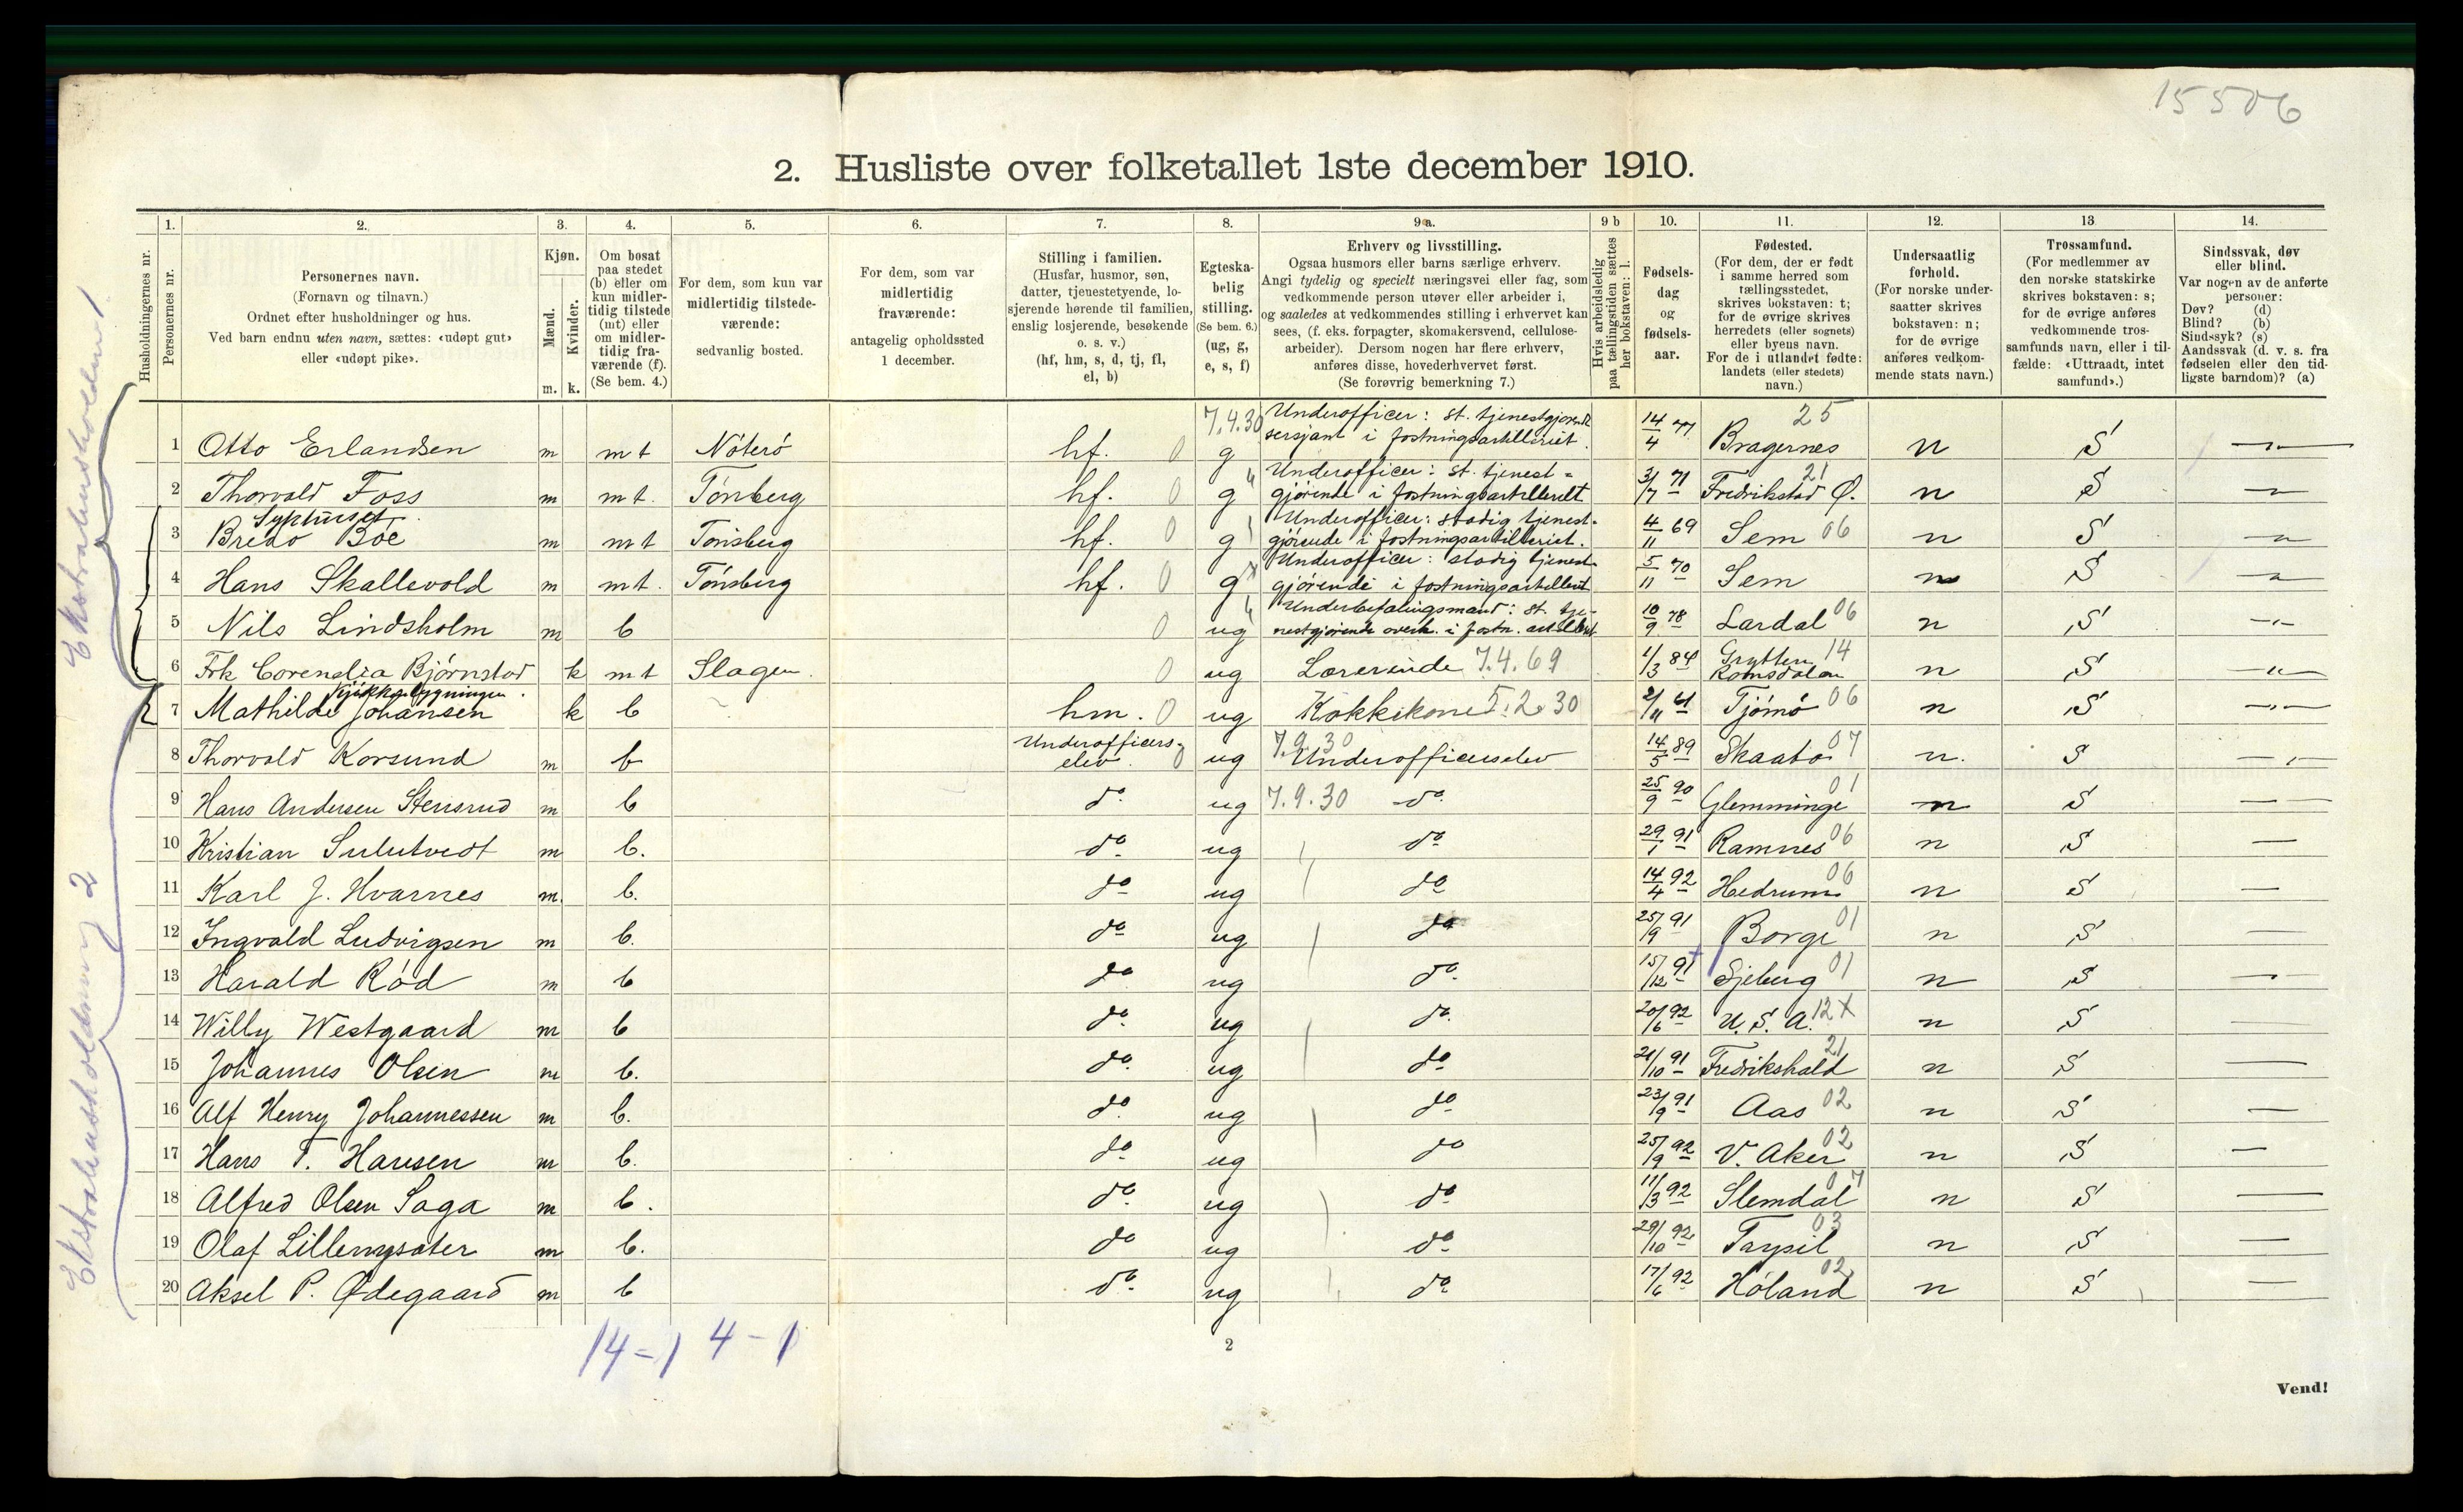 15506
2. Husliste over folketallet 1ste december 1910.
1. 2. 3. 4. 5. 6. 7. 8. 9 a. 9 b 10. 11. 12. 13 14.
Husholdningernes nr.
Personernes nr.
Personernes navn.
(Fornavn og tilnavn.)
Ordnet efter husholdninger og hus.
Ved barn endnu uten navn, sættes: «udøpt gut»
eller «udøpt pike».
Kjøn.
Mænd.
Kvinder.
m. k.
Om bosat
paa stedet
(b) eller om
kun midler-
tidig tilstede
(mt) eller
om midler-
tidig fra-
værende (f).
(Se bem. 4.)
For dem, som kun var
midlertidig tilstede-
værende:
sedvanlig bosted.
For dem, som var
midlertidig
fraværende:
antagelig opholdssted
1 december.
Stilling i familien.
(Husfar, husmor, søn,
datter, tjenestetyende, lo-
sjerende hørende til familien,
enslig losjerende, besøkende
o. s. v.)
(hf, hm, s, d, tj, fl,
el, b)
Egteska-
belig
stilling.
(Se bem. 6.)
(ug, g,
e, s, f)
Erhverv og livsstilling.
Ogsaa husmors eller barns særlige erhverv.
Angi tydelig og specielt næringsvei eller fag, som
vedkommende person utøver eller arbeider i,
og saaledes at vedkommendes stilling i erhvervet kan
sees, (f. eks. forpagter, skomakersvend, cellulose-
arbeider). Dersom nogen har flere erhverv,
anføres disse, hovederhvervet først.
(Se forøvrig bemerkning 7.)
Hvis arbeidsledig
paa tællingstiden sættes
her bokstaven: l.
Fødsels-
dag
og
fødsels-
aar.
Fødested.
(For dem, der er født
i samme herred som
tællingsstedet,
skrives bokstaven: t;
for de øvrige skrives
herredets (eller sognets)
eller byens navn.
For de i utlandet fødte:
landets (eller stedets)
navn.)
Undersaatlig
forhold.
(For norske under-
saatter skrives
bokstaven: n;
for de øvrige
anføres vedkom-
mende stats navn.)
Trossamfund.
(For medlemmer av
den norske statskirke
skrives bokstaven: s;
for de øvrige anføres
vedkommende tros-
samfunds navn, eller i til-
fælde: «Uttraadt, intet
samfund».)
Sindssvak, døv
eller blind.
Var nogen av de anførte
personer:
Døv? (d)
Blind? (b)
Sindssyk? (s)
Aandssvak (d. v. s. fra
fødselen eller den tid-
ligste barndom)? (a)
1 Otto Erlandsen m mt Nøterø hf. 0 g 7.4.30 Underofficer: st. tjenestgjørende sersjant i fæstningsartilleriet. 14/4 77 Bragernes 25 n S
2 Thorvald Foss m mt. Tønberg hf. 0 g Underofficer: st. tjenest-gjørende i fæstningsartilleriet 3/7 71 Fredrikstad Ø. 21 n S
Sykhuset
3 Bredo Bøe m mt Tønsberg hf. 0 g Underofficer: stadig tjenest-gjørende i fæstningsartilleriet. 4/11 69 Sem 06 n S
4 Hans Skallevold m mt. Tønsberg hf. 0 g Underofficer: stadig tjenest-gjørende i fæstningsartilleriet 5/11 70 Sem n S
5 Nils Lindsholm m b 0 ug Underbefalingsmand: st. tje-nestgjørende overk. i fæstn. artilleriet 10/9 78 Lardal 06 n S
6 Frk Corendia Bjørnstad k mt Slagen 0 ug Lærerinde 7.4.69 1/3 84 Grytten Romsdalen 14 n S
Kjøkkenbygningen.
7 Mathilde Johansen k b hm. 0 ug Kokkekone 5.2.30 2/11 61 Tjømø 06 n S
8 Thorvald Korsund m b Underofficers-elev. 0 ug 7.9.30 Underofficerselev 14/5 89 Skaatø 07 n. S
9 Hans Andersen Stensrud m b do ug 7.9.30 do 25/9 90 Glemminge 01 n S
10 Kristian Sulutvedt m b. do ug do 29/1 91 Ramnes 06 n S
11 Karl J. Hvarnes m. b. do ug do 14/4 92 Hedrum 06 n S
12 Ingvald Ludvigsen m b. do ug do 25/9 91 Borge 01 n S
13 Harald Rød m b do ug do 15/12 91 Sjeberg 01 n S
14 Willy Westgaard m b do ug do 20/6 92 U. S. A. 12 X n S
15 Johannes Olsen m b. do ug do 21/10 91 Fredrikshald 21 n S
16 Alf Henry Johannessen m b. do ug do 23/9 91 Aas 02 n S
17 Hans T. Hansen m b. do ug do 25/9 92 V. Aker 02 n S
18 Alfred Olsen Saga m b. do ug do 11/3 92 Slemdal 07 n S
19 Olaf Lillemysæter m b. do ug do 29/10 92 Trysil 03 n S
20 Aksel P. Ødegaard m b do ug do 17/6 92 Høland 02 n S
Ekstrahusholdning 1
Ekstrahusholdning 2
14-1 4-1
2
Vend!